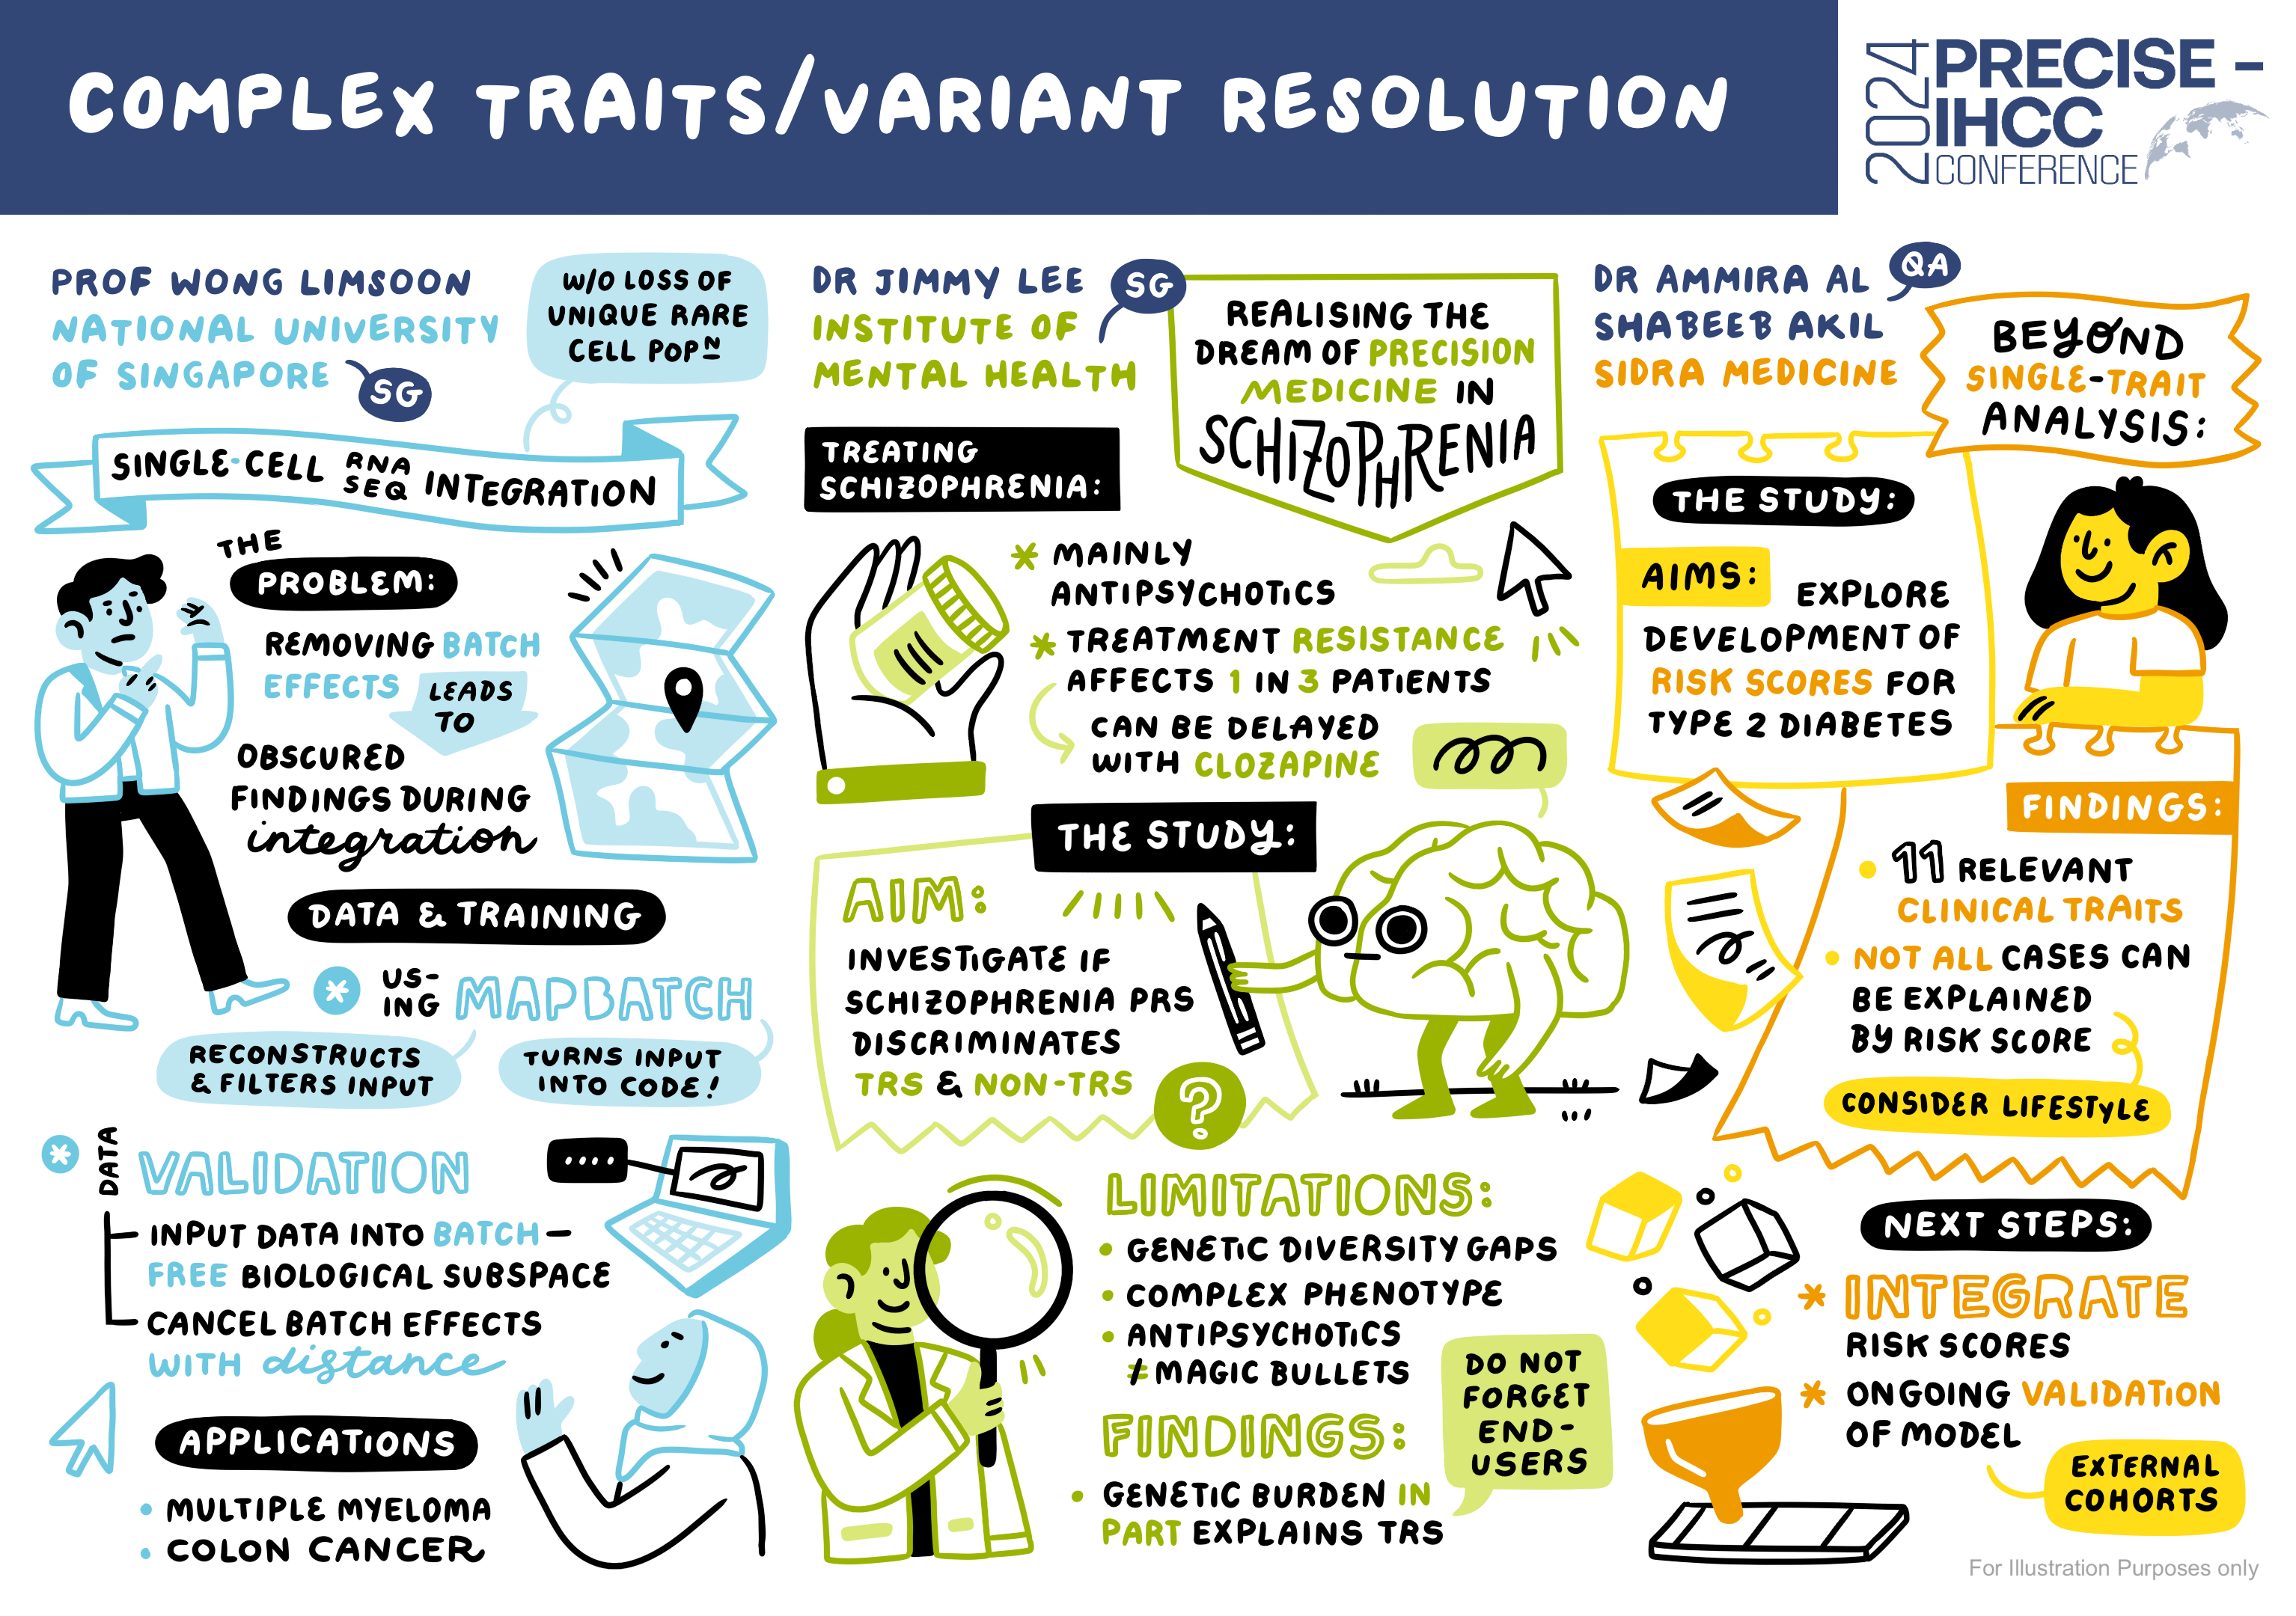 COMPLEX TRAITS/VARIANT RESOLUTION
2024
PRECISE –
IHCC
CONFERENCE
PROF WONG LIMSOON
NATIONAL UNIVERSITY
OF SINGAPORE
SG
W/O LOSS OF
UNIQUE RARE
CELL POPN
SINGLE-CELL RNA SEQ INTEGRATION
THE
PROBLEM:
REMOVING BATCH
EFFECTS
LEADS
TO
OBSCURED
FINDINGS DURING
integration
DATA & TRAINING
* US-
ING MAPBATCH
RECONSTRUCTS
& FILTERS INPUT
TURNS INPUT
INTO CODE!
* DATA VALIDATION
INPUT DATA INTO BATCH –
FREE BIOLOGICAL SUBSPACE
CANCEL BATCH EFFECTS
WITH distance
APPLICATIONS
• MULTIPLE MYELOMA
• COLON CANCER
DR JIMMY LEE
INSTITUTE OF
MENTAL HEALTH
SG
REALISING THE
DREAM OF PRECISION
MEDICINE IN
SCHIZOPHRENIA
TREATING
SCHIZOPHRENIA:
* MAINLY
ANTIPSYCHOTICS
* TREATMENT RESISTANCE
AFFECTS 1 IN 3 PATIENTS
CAN BE DELAYED
WITH CLOZAPINE
THE STUDY:
AIM:
INVESTIGATE IF
SCHIZOPHRENIA PRS
DISCRIMINATES
TRS & NON-TRS
?
LIMITATIONS:
• GENETIC DIVERSITY GAPS
• COMPLEX PHENOTYPE
• ANTIPSYCHOTICS
≠ MAGIC BULLETS
FINDINGS:
• GENETIC BURDEN IN
PART EXPLAINS TRS
DO NOT
FORGET
END-
USERS
DR AMMIRA AL
SHABEEB AKIL
SIDRA MEDICINE
QA
BEYOND
SINGLE-TRAIT
ANALYSIS:
THE STUDY:
AIMS: EXPLORE
DEVELOPMENT OF
RISK SCORES FOR
TYPE 2 DIABETES
FINDINGS:
• 11 RELEVANT
CLINICAL TRAITS
• NOT ALL CASES CAN
BE EXPLAINED
BY RISK SCORE
CONSIDER LIFESTYLE
NEXT STEPS:
* INTEGRATE
RISK SCORES
* ONGOING VALIDATION
OF MODEL
EXTERNAL
COHORTS
For Illustration Purposes only